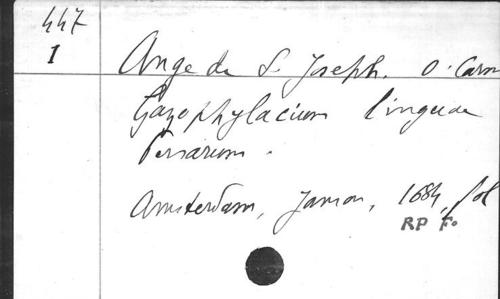 447
1
Ange de S. Joseph. O. Carm
Gazophylacium linguae
Persarum.
Amsterdam, Janson, 1684, fol
RP Fo